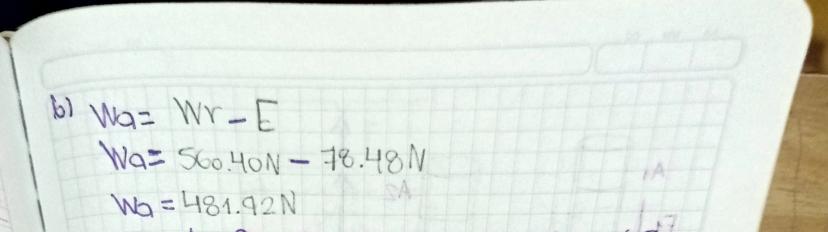 b) Wa= Wr-E
Wa= 560.40N - 78.48N
Wa = 481.92N